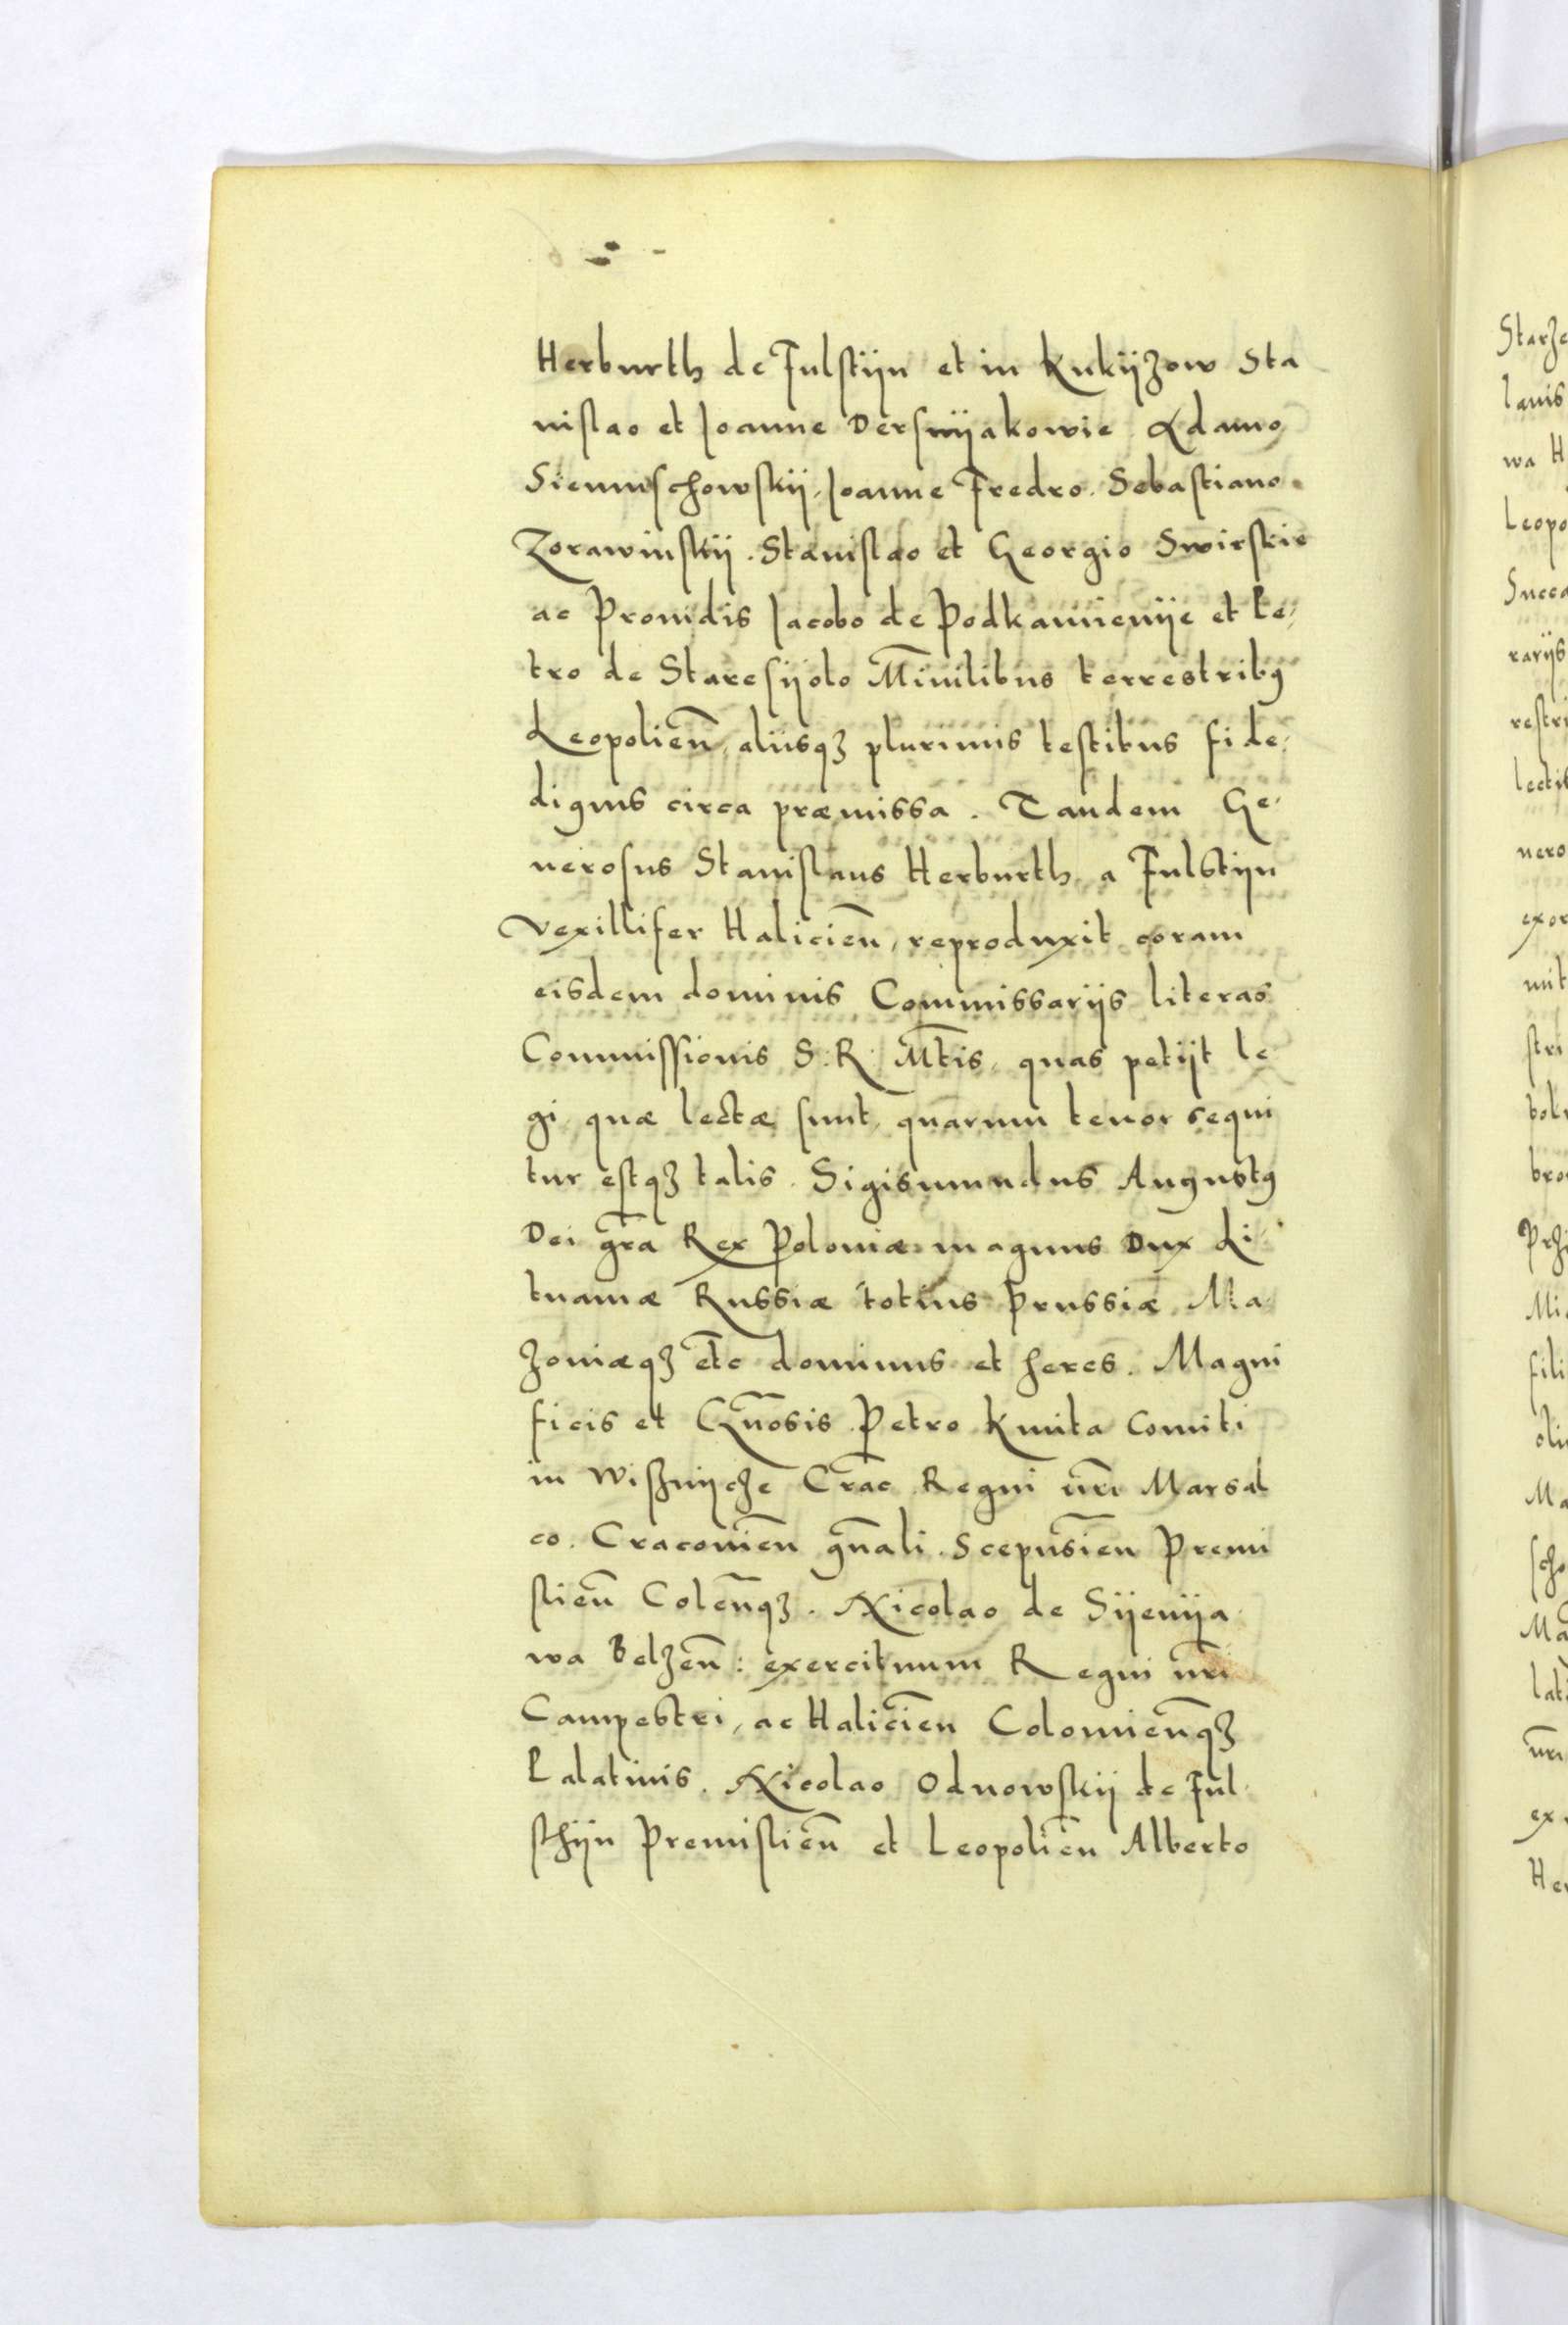 Herburth de Fulstijn et in Kukijzow Sta
nislao et Joanne Dersnijakowie. Adamo
Siennischowskij, Joanne Fredro. Sebastiano
Zorawinskij. Stanislao et Georgio Swirskie
ac Prouidis Jacobo de Podkamienije et Pe,
tro de Staresijolo M̃inilibus terrestribꝰ
Leopolieñ, aliisqꝫ plurimis testibus fide,
dignis circa præmissa. Tandem Ge,
nerosus Stanislaus Herburth a Fulstijn
Vexillifer Halicieñ, reproduxit coram
eisdem dominis Commissarijs literas
Commissionis S. R. Mt̃is, quas petijt le
gi, quæ lectæ sunt, quarum tenor sequi
tur estqꝫ talis. Sigismundus Augustꝰ
Dei gr̃a Rex Poloniæ magnus Dux Li
tuaniæ Russiæ totius Prussiæ Ma
zouiæqꝫ et̃c dominus et heres. Magni
ficis et Gñosis Petro Kmita Comiti
in Wisznijcze Cra̅c Regni nr̃i Marsal
co. Cracouieñ gñali. Scepusieñ Premi
slieñ Coleñqꝫ. Nicolao de Sijenija
wa Belzeñ: exercituum Regni nr̃i
Campestri, ac Halicieñ Colomieñqꝫ
Palatinis. Nicolao Odnowskij de Ful
sthijn Premislieñ et Leopolieñ Alberto
Starze
lauis
wa H
Leopo
Succa
rarijs
restri
lectis
nero
exor
mit
stri
bro
Mi
fili
Ma
scho
nr̃i
ex
Her